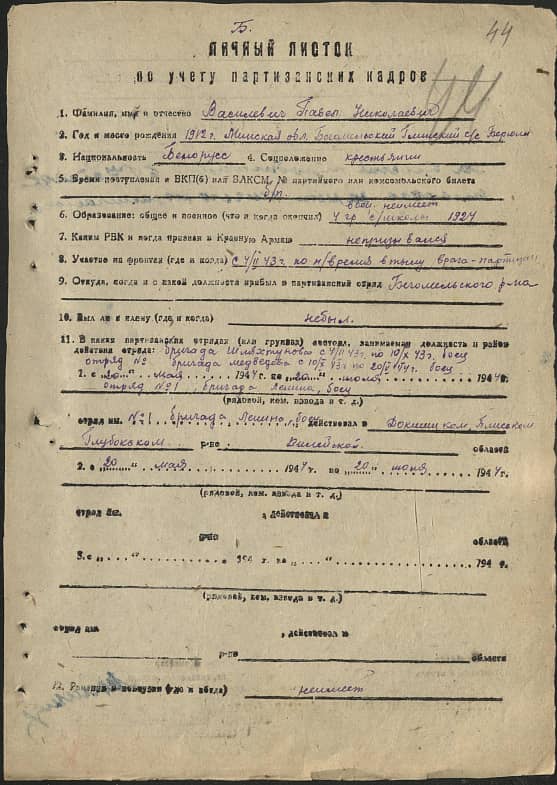 Б.
44
ЛИЧНЫЙ ЛИСТОК
по учету партизанских кадров
1. Фамилия, имя и отчество Василевич Павел Николаевич
2. Год и место рождения 1912 г. Минская обл. Бегомльский с/с
3. Национальность Белорусс 4. Соцположение крестьянин
5. Время поступления в ВКП(б) или ВЛКСМ, № партийного или комсомольского билета
б/п.
воен. неимеет
6. Образование: общее и военное (что и когда окончил) 4 гр. с/школы 1927
7. Каким РВК и когда призван в Красную Армию непризывался
8. Участие на фронтах (где и когда) с 4/II 43 г. по н/время в тылу врага - партизан
9. Откуда, когда и с какой должности прибыл в партизанский отряд Бегомльского р-на
10. Был ли в плену (где и когда) небыл.
11. В каких партизанских отрядах (или группах) состоял, занимаемая должность и район
действия отряда: бригада с 4/II 43 г. по 10/X 43 г. боец
отряд № бригада медведева с 10/X 43 г. по 20/V 44 г. боец
1. с „20“ мая 1944 г. по „20“ июня 1944 г.
отряд № 1, бригада Ленина, боец
(рядовой, ком. взвода и т. д.)
отряд им. № 1 бригада Ленина, боец, действовал в Докшицком, Плисском
Глубокском р-не Вилейской области
2. с „20“ мая 1944 г. по „20“ июня 1944 г.
(рядовой, ком. взвода и т. д.)
отряд им. , действовал в
р-не области
3. с „ “ 194 г. по „ “ 194 г.
(рядовой, ком. взвода и т. д.)
отряд им. , действовал в
р-не области
12. Ранения и контузии (где и когда) неимеет